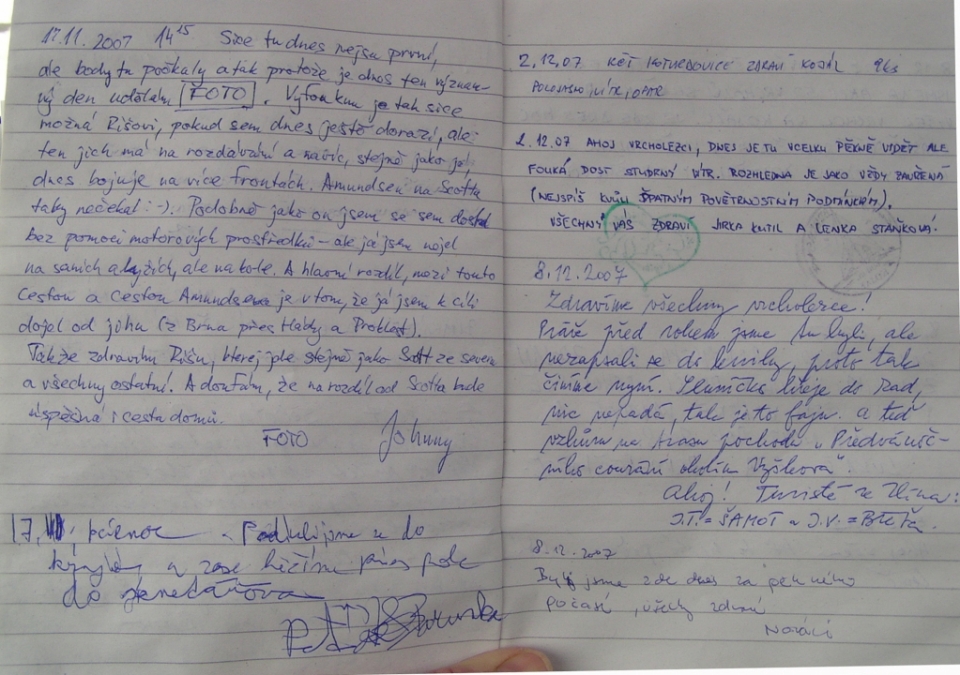 17.11. 2007 14¹⁵ Sice tu dnes nejsu první,
ale body tu počkaly a tak protože je dnes ten význam-
ný den udělám FOTO. Vyfouknu je tak sice
možná Ríšovi, pokud sem dnes ještě dorazí, ale
ten jich má na rozdávání a navíc, stejně jako já,
dnes bojuje na více frontách. Amundsen na Scotta
taky nečekal :-). Podobně jako on jsem se sem dostal
bez pomoci motorových prostředků - ale já jsem nejel
na saních a lyžích, ale na kole. A hlavní rozdíl, mezi touto
Cestou a Cestou Amundsena je v tom, že já jsem k cíli
dojel od jihu (z Brna přes Hády a Proklest).
Takže zdravím Ríšu, kterej jde stejně jako Scott ze severu
a všechny ostatní. A doufám, že na rozdíl od Scotta bude
úspěšná i cesta domů.
FOTO Johnny
17. - Podepisujeme se do
a zase běžíme přes pole
do
2.12.07 KČT KOZÁL
POLOJASNO
2.12.07 AHOJ VRCHOLEZCI, DNES JE TU VCELKU PĚKNĚ VIDĚT ALE
FOUKÁ DOST STUDENÝ VÍTR. ROZHLEDNA JE JAKO VŽDY ZAVŘENÁ
(NEJSPÍŠ KVŮLI ŠPATNÝM POVĚTRNOSTNÍM PODMÍNKÁM).
VŠECHNY VÁS ZDRAVÍ JIRKA KUTIL A LENKA STAŇKOVÁ.
8.12.2007
Zdravíme všechny vrcholezce!
Právě před rokem jsme tu byli, ale
nezapsali se do knížky, proto tak
činíme nyní. Sluníčko leze do zad,
nic nepadá, tak je to fajn. a teď
vzhůru na trasu pochodu „Předvánoč-
ního courání okolím Vyškova".
Ahoj! Turisté ze Zlína:
J.T. = ŠAMOT a J.V. =
8.12.2007
Byli jsme zde dnes za pěkného
počasí, všechny zdraví
Nováci